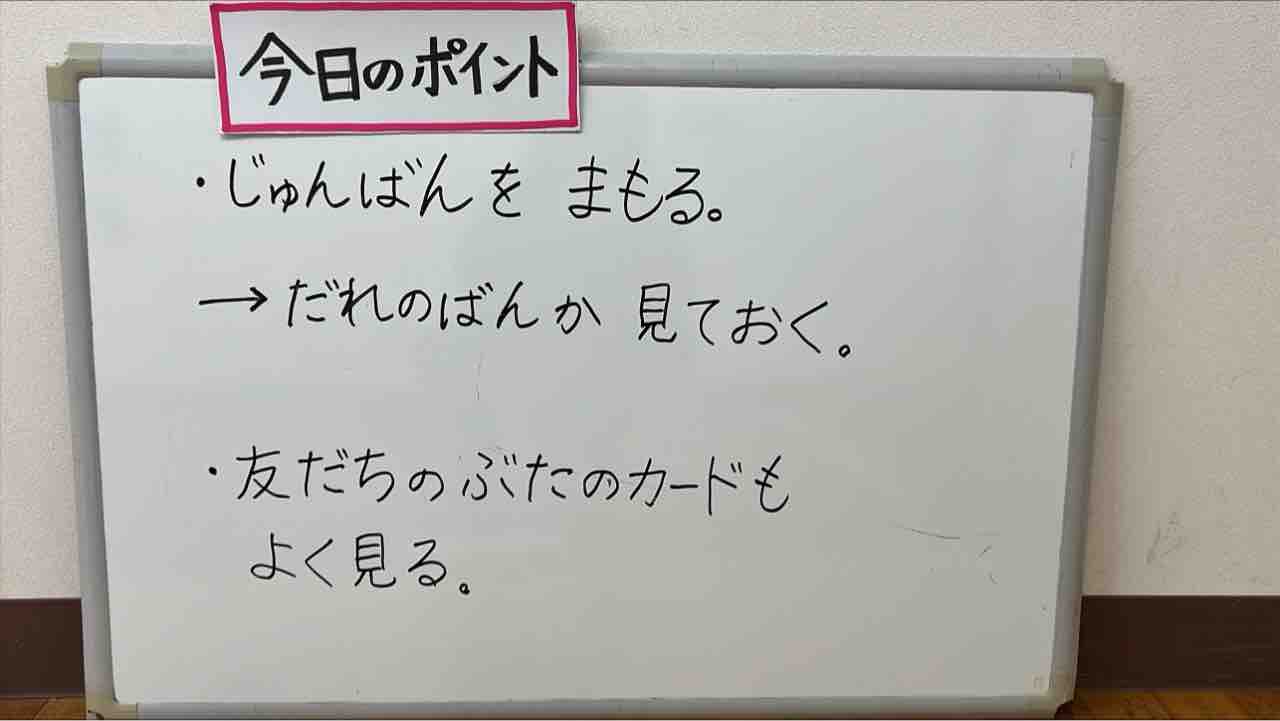 今日のポイント
・じゅんばんを まもる。
→だれのばんか 見ておく。
・友だちのぶたのカードも
よく見る。